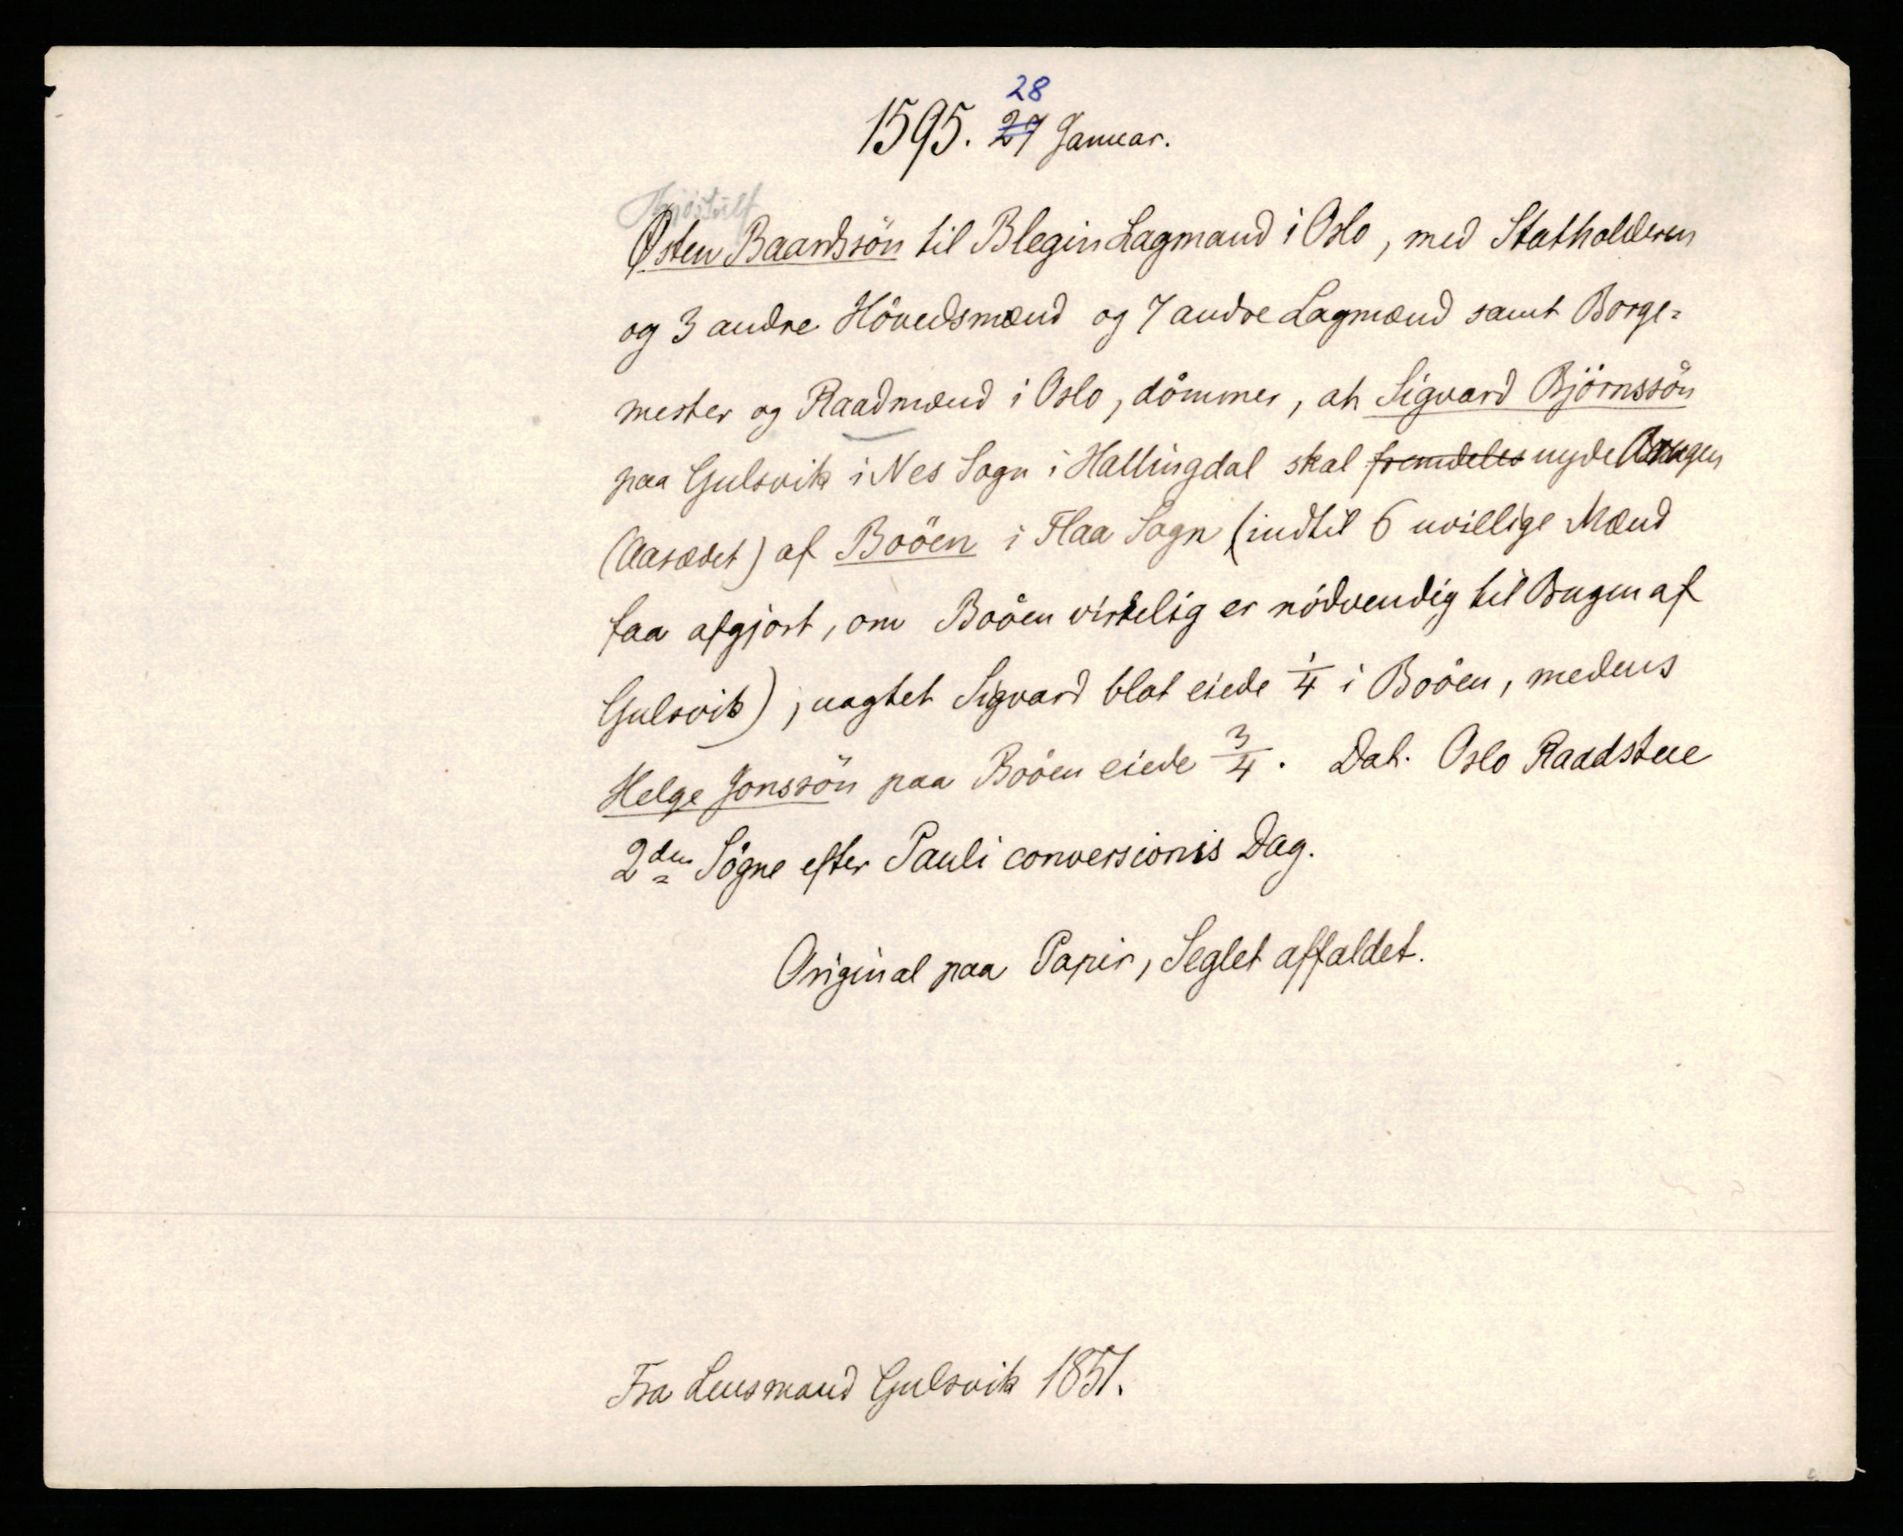 28
1595. 27 Januar.
Thjostulf
Østen Baardssön til Blegin Lagmand i Oslo, med Statholderen
og 3 andre Hövedsmænd og 7 andre Lagmænd samt Borge=
mester og Raadmænd i Oslo, dömmer, at Sigvard Björnssön
paa Gulsvik i Nes Sogn i Hallingdal skal fremdeles nyde Brugen
(Aasædet) af Boöen i Flaa Sogn (indtil 6 uvillige Mænd
faa afgjort, om Boöen virkelig er nödvendig til Brugen af
Gulsvik), uagtet Sigvard blot eiede 1/4 i Boöen, medens
Helge Jonssön paa Boöen eiede 3/4. Dat. Oslo Raadstue
2den Sögne efter Pauli conversionis Dag.
Original paa Papir, Seglet affaldet.
Fra Lensmand Gulsvik 1851.